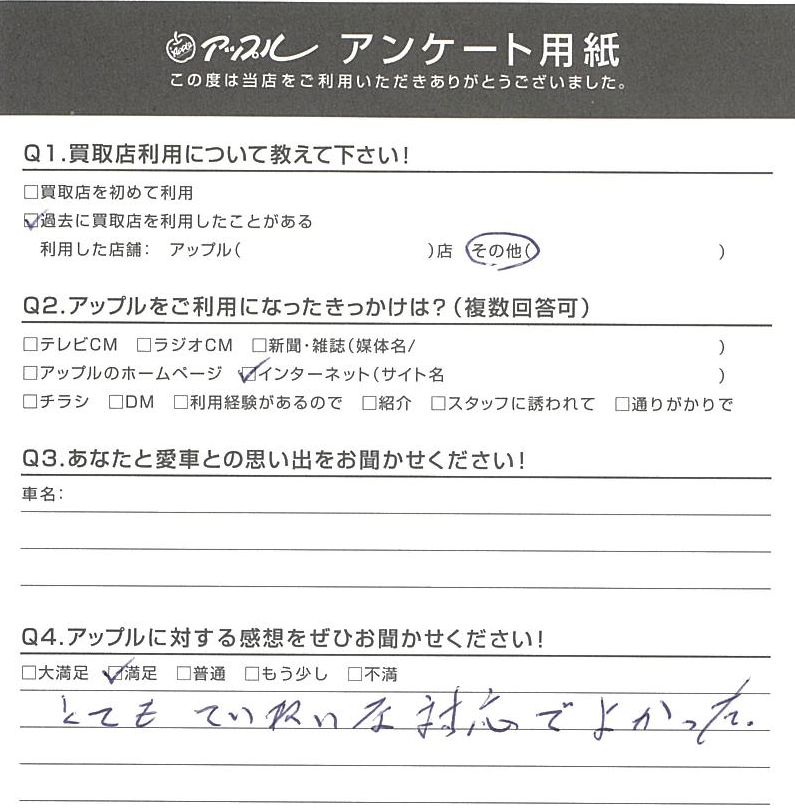 Apple アップル アンケート用紙
この度は当店をご利用いただきありがとうございました。
Q1.買取店利用について教えて下さい!
□買取店を初めて利用
☑過去に買取店を利用したことがある
利用した店舗: アップル( )店 その他( )
Q2.アップルをご利用になったきっかけは?(複数回答可)
□テレビCM □ラジオCM □新聞・雑誌(媒体名/ )
□アップルのホームページ ☑インターネット(サイト名 )
□チラシ □DM □利用経験があるので □紹介 □スタッフに誘われて □通りがかりで
Q3.あなたと愛車との思い出をお聞かせください!
車名:
Q4.アップルに対する感想をぜひお聞かせください!
□大満足 ☑満足 □普通 □もう少し □不満
とても てい扱いな 対応で よかった.